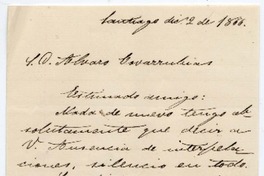 Santiago dic 2 de 1866.
S. D. Alvaro Covarrubias
Estimado amigo:
Nada de nuevo tengo ab-
solutamente que decir a
V. Ausencia de interpela-
ciones, silencio en todo.